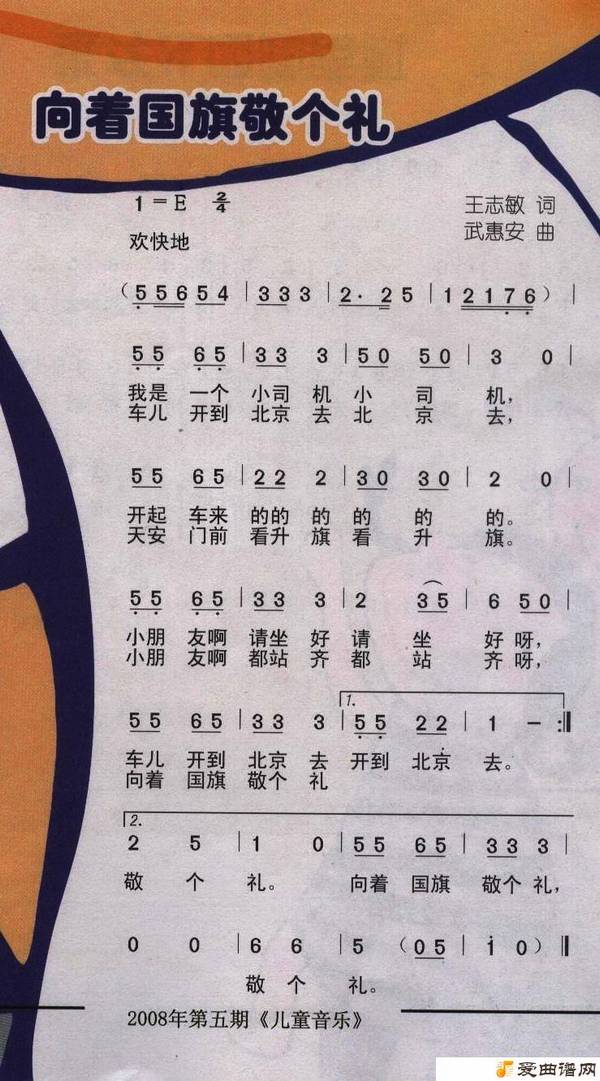 向着国旗敬个礼
1=E 2/4
王志敏 词
欢快地
武惠安 曲
(5 5 6 5 4 | 3 3 3 3 | 2· 2 5 | 1 2 1 7 6) |
5 5 6 5 | 3 3 3 | 5 0 5 0 | 3 0 |
我是 一个 小司 机 小 司 机,
车儿 开到 北京 去 北 京 去,
5 5 6 5 | 2 2 2 | 3 0 3 0 | 2 0 |
开起 车来 的的 的 的 的 的。
天安 门前 看升 旗 看 升 旗。
5 5 6 5 | 3 3 3 | 2 3 5 | 6 5 0 |
小朋 友啊 请坐 好 请 坐 好 呀,
小朋 友啊 都站 齐 都 站 齐 呀,
1.
5 5 6 5 | 3 3 3 | 5 5 2 2 | 1 – :‖
车儿 开到 北京 去 开到 北京 去。
向着 国旗 敬个 礼
2.
2 5 | 1 0 | 5 5 6 5 | 3 3 3 |
敬 个 礼。 向着 国旗 敬个 礼,
0 0 | 6 6 | 5 (0 5 | i 0) ‖
敬 个 礼。
2008年第五期《儿童音乐》
爱曲谱网